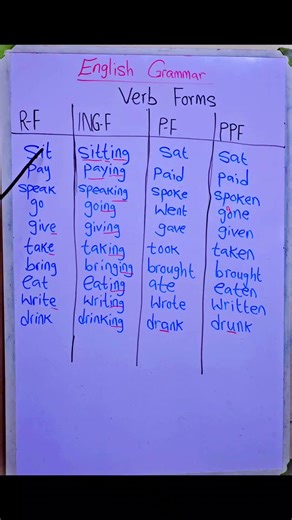 English Grammar
Verb Forms
R-F ING-F P-F PPF
sit sitting sat sat
pay paying paid paid
speak speaking spoke spoken
go going went gone
give giving gave given
take taking took taken
bring bringing brought brought
eat eating ate eaten
write writing wrote written
drink drinking drank drunk